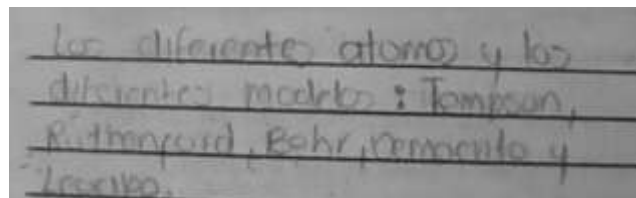 Los diferentes atomos y los
diferentes modelos : Tompson,
Ruthenford, Bohr, Democrito y
Leucipo.